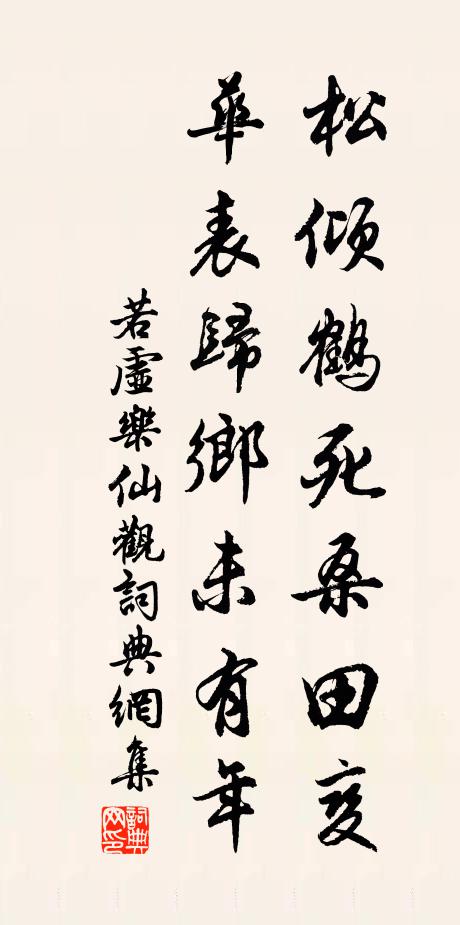 松傾鶴死桑田變
華表歸鄉未有年
若虛樂仙觀詞典網集
詞典網印